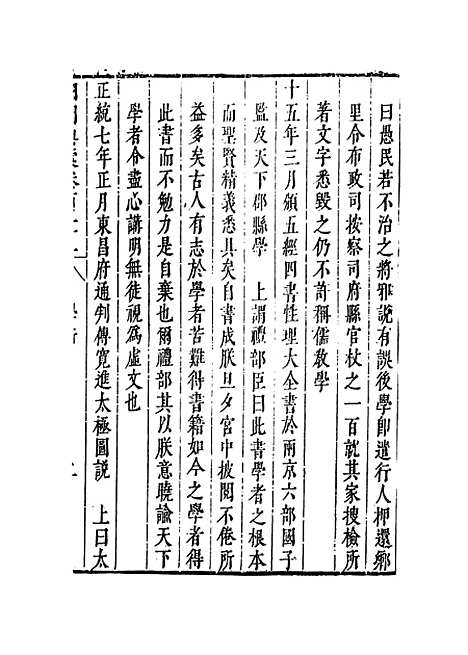 曰愚民若不治之將邪說有誤後學即遣行人押還鄉
里令布政司按察司府縣官杖之一百就其家搜檢所
著文字悉毀之仍不許稱儒教學
十五年三月頒五經四書性理大全書於兩京六部國子
監及天下郡縣學 上謂禮部臣曰此書學者之根本
而聖賢精義悉具矣自書成朕旦夕宮中披閱不倦所
益多矣古人有志於學者苦難得書籍如今之學者得
此書而不勉力是自棄也爾禮部其以朕意曉諭天下
學者令盡心講明無徒視為虛文也
正統七年正月東昌府通判傅寬進太極圖說 上曰太